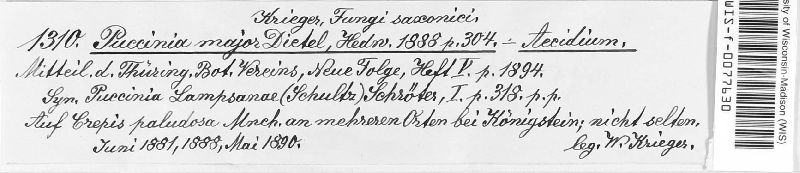 Krieger, Fungi saxonici.
1310. Puccinia major Dietel, Hedw. 1888 p. 304. – Aecidium.
Mitteil. d. Thüring. Bot. Vereins, Neue Folge, Heft V. p. 1894.
Syn. Puccinia Lampsanae (Schultz) Schröter, I. p. 318. p. p.
Auf Crepis paludosa Mnch. an mehreren Orten bei Königstein; nicht selten.
Juni 1881, 1888, Mai 1890.
leg. W. Krieger.
of Wisconsin-Madison (WIS)
WIS-f-0077630